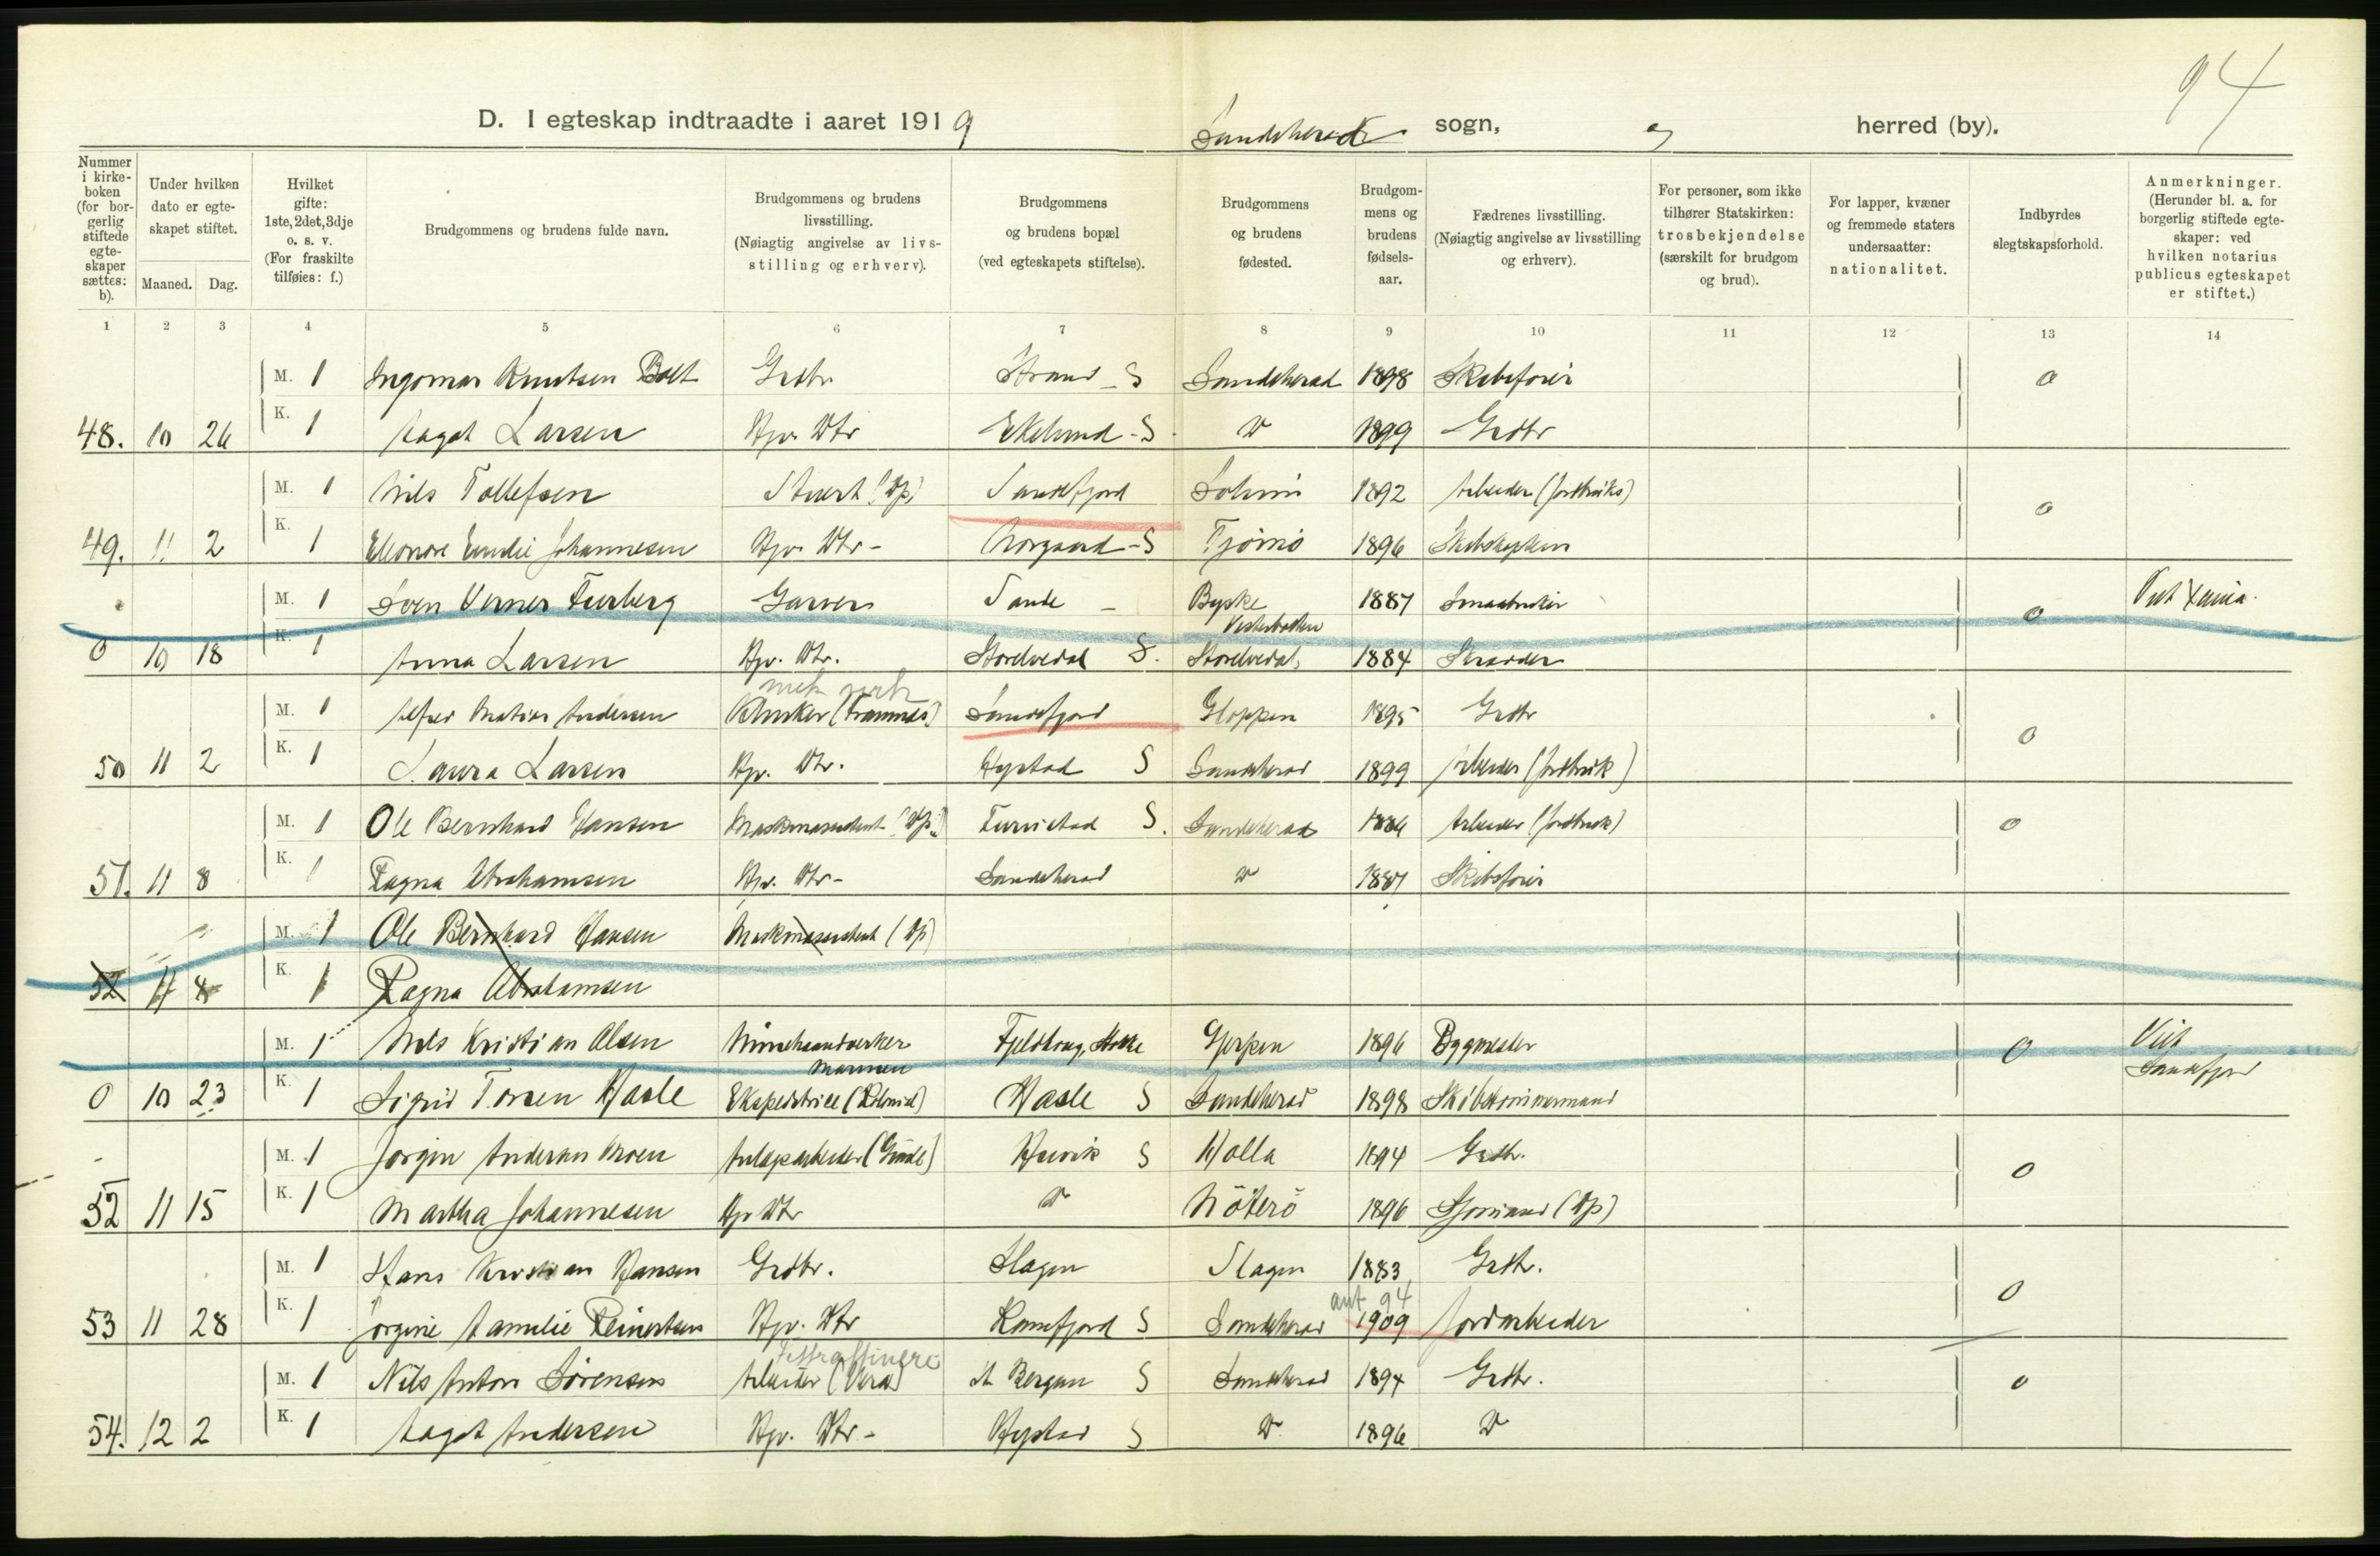 94
D. I egteskap indtraadte i aaret 1919 Sandeherad sogn, herred (by).
Nummer i kirkeboken (for borgerlig stiftede egteskaper sættes: b).
Under hvilken dato er egteskapet stiftet.
Maaned. Dag.
Hvilket gifte: 1ste, 2det, 3dje o. s. v. (For fraskilte tilføies: f.)
Brudgommens og brudens fulde navn.
Brudgommens og brudens livsstilling. (Nøiagtig angivelse av livsstilling og erhverv).
Brudgommens og brudens bopæl (ved egteskapets stiftelse).
Brudgommens og brudens fødested.
Brudgommens og brudens fødselsaar.
Fædrenes livsstilling. (Nøiagtig angivelse av livsstilling og erhverv).
For personer, som ikke tilhører Statskirken: trosbekjendelse (særskilt for brudgom og brud).
For lapper, kvæner og fremmede staters undersaatter: nationalitet.
Indbyrdes slegtskapsforhold.
Anmerkninger. (Herunder bl. a. for borgerlig stiftede egteskaper: ved hvilken notarius publicus egteskapet er stiftet.)
1 2 3 4 5 6 7 8 9 10 11 12 13 14
M. 1 Ingomar Knutsen Bolt Grdbr Strand - S Sandeherad 1898 Skibsfører 0
48. 10 26 K. 1 Aagot Larsen Hjv. Dtr Ekelund - S 1899 Grdbr
M. 1 Nils Tollefsen Stuert Sandefjord 1892 Arbeider (jordbruks) 0
49. 11 2 K. 1 Eleonore Emilie Johannesen Hjv. Dtr - Norgaard - S Tjømø 1896
M. 1 Sven Verner Garver Sande - Byske Vesterbotten 1887 Smaabruker 0 Viet Xania.
0 10 18 K. 1 Anna Larsen Hjv. Dtr. Storelvedal S. Storelvedal 1884 Skrædder
mek verk
M. 1 Alfred Matias Andersen Klinker (Framnæs) Sandefjord Gloppen 1895 Grdbr 0
50 11 2 K. 1 Laura Larsen Hjv. Dtr. Hystad S Sandeherad 1899 Arbeider (jordbruk)
M. 1 Ole Bernhard Hansen Maskinassistent Furustad S. Sandeherad 1886 Arbeider (jordbruk) 0
51. 11 8 K. 1 Ragna Abrahamsen Hjv. Dtr - Sandeherad 1887 Skibsfører
M. 1 Ole Bernhard Hansen Maskinassistent
52 11 8 K. 1 Ragna Abrahamsen
M. 1 Nils Kristian Olsen Minehaandverker Marinen Stokke Gjerpen 1896 Bygmester 0 Viet Sandefjord
0 10 23 K. 1 Sigrid Torsen Hasle Ekspeditrice (Kolonial) Hasle S Sandeherad 1898 Skibstømmermand
M. 1 Jørgen Andersen Moen Anlægsarbeider Huvik S Holla 1894 Grdbr. 0
52 11 15 K. 1 Martha Johannesen Hjv Dtr Nøterø 1896 Sjømand
M. 1 Hans Kristian Hansen Grdbr. Slagen Slagen 1883 Grdbr. 0
ant 94
53 11 28 K. 1 Jørgine Amilie Reinertsen Hjv. Dtr Ranefjord S Sandeherad 1909 Jordarbeider
Fettraffineri
M. 1 Nils Anton Sørensen Arbeider (Vera) St. Bergan S Sandeherad 1894 Grdbr. 0
54. 12 2 K. 1 Aagot Andersen Hjv. Dtr - Hystad S 1896